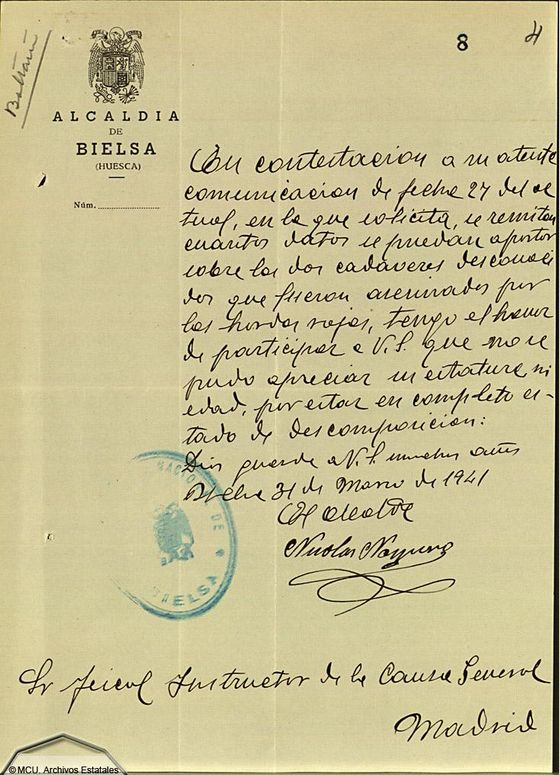 8
4
Beltrán
ALCALDIA
DE
BIELSA
(HUESCA)
Núm.
En contestacion a su atenta
comunicacion de fecha 27 del ac
tual, en la que solicita, se remitan
cuantos datos se puedan aportar
sobre los dos cadaveres desconoci
dos que fueron asesinados por
las hordas rojas, tengo el honor
de participar a V.S. que no se
pudo apreciar su estatura ni
edad, por estar en completo es-
tado de descomposicion:
Dios guarde a V.S. muchos años
Bielsa 31 de Marzo de 1941
El alcalde
Nicolas
NACIONAL DE
BIELSA
Sr Instructor de la Causa General
Madrid
© MCU. Archivos Estatales